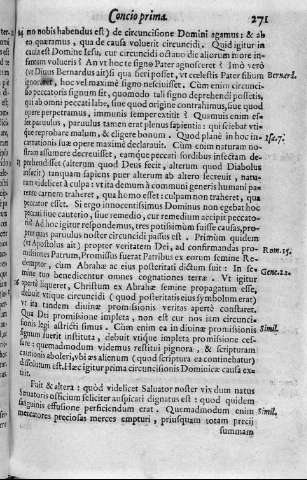 Concio prima. 271
no nobis habendus est) de circuncisione Domini agamus: & ab
eo quæramus, qua de causa voluerit circuncidi. Quid igitur in
causa est Domine Iesu, cur circuncidi octauo die aliorum more in-
fantum volueris? An vt hocte signo Pater agnosceret? Imò verò
(vt Diuus Bernardus ait) si qua fieri posset, vt cœlestis Pater filium Bernard.
ignoraret, hoc vel maximè signo nesciuisset. Cum enim circunci-
sio peccatoris signum sit, quomodo tali signo deprehendi possit is,
qui ab omni peccati labe, siue quod origine contrahimus, siue quod
opere perpetramus, immunis semper extitit? Quamuis enim es-
set paruulus, paruulus tamen erat plenus sapientia: qui sciebat vti-
que reprobare malum, & eligere bonum. Quod planè in hoc in- Isa. 7.
cantationis suæ opere maximè declarauit. Cum enim naturam no-
stram assumere decreuisset, eamque peccati sordibus infectam de-
prehendisset (alterum quod Deus fecit, alterum quod Diabolus
miscuit) tanquam sapiens puer alterum ab altero secreuit, natu-
ram videlicet à culpa: vt ita demum à communi generis humani pa-
rente carnem traheret, qua homo esset: culpam non traheret, qua
peccator esset. Si ergo innocentissimus Dominus non egebat hoc
peccati siue cauterio, siue remedio, cur remedium accipit peccato-
Ad hoc igitur respondemus, tres potissimùm fuisse causas, pro-
pter quas paruulus noster circuncidi passus est. Primùm quidem
(vt Apostolus ait) propter veritatem Dei, ad confirmandas pro- Rom. 15.
missiones Patrum, Promissus fuerat Patribus ex eorum semine Re-
demptor, cum Abrahæ ac eius posteritati dictum sit: In se- Gene. 22.
mine tuo benedicentur omnes cognationes terræ. Vt igitur
aperte liqueret, Christum ex Abrahæ semine propagatum esse,
debuit vtique circuncidi (quod posteritatis eius symbolum erat)
vt ita tandem diuinæ promissionis veritas apertè constaret.
Qua Dei promissione impleta, non est cur nos iam circunci-
sionis legi astricti simus. Cum enim ea in diuinæ promissionis Simil.
signum fuerit instituta, debuit vtique impleta promissione ces-
sare: quemadmodum videmus restitui pignora, & scripturam
cautionis aboleri, vbi æs alienum (quod scriptura ea continebatur)
dissolutum est. Hæc igitur prima circuncisionis Dominicæ causa ex-
titit.
Fuit & altera: quod videlicet Saluator noster vix dum natus
Saluatoris officium feliciter auspicari dignatus est: quod quidem
sanguinis effusione perficiendum erat. Quemadmodum enim Simil.
mercatores preciosas merces empturi, priusquam totam precij
summam